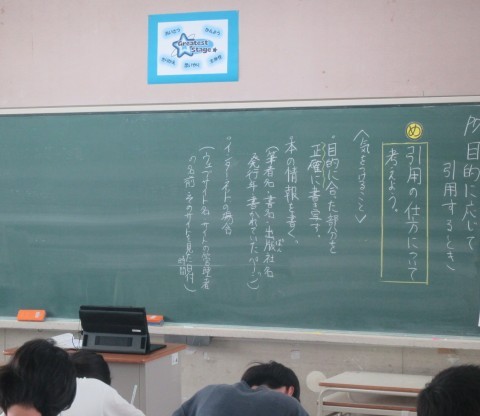 Greatest
Stage
目的に応じて
引用するとき
め
引用の仕方について
考えよう。
〈気をつけること〉
・目的に合った部分を
正確に書き写す。
・本の情報を書く。
(筆者名・書名・出版社名
発行年・書かれていたページ)
・インターネットの場合
(ウェブサイト名・サイトの管理者
の名前・そのサイトを見た日付
時間)